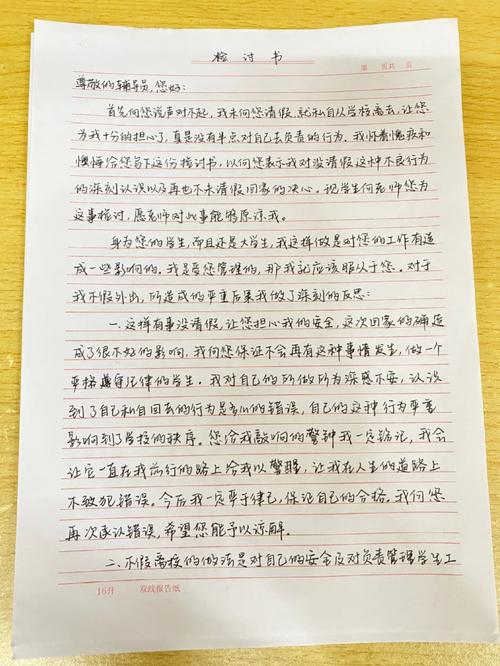 检讨书
第 页共 页
尊敬的辅导员,您好:
首先向您说声对不起,我未向您请假,就私自从学校离去,让您
为我十分的担心了,真是没有半点对自己去负责的行为。我怀着愧疚和
懊悔给您写下这份检讨书,以向您表示我对没请假这种不良行为
的深刻认识以及再也不未请假回家的决心。现学生向老师您为
这事检讨,愿老师对此事能够原谅我。
身为您的学生,而且还是大学生,我这样做是对您的工作有造
成一些影响的。我是受您管理的,那我就应该服从于您。对于
我不假外出,所造成的严重后果我做了深刻的反思:
一、这样有事没请假,让您担心我的安全,这次回家的确造
成了很不好的影响,我向您保证不会再有这种事情发生,做一个
严格遵守纪律的学生。我对自己的所做所为深感不安,认识
到了自己私自回去的行为是多么的错误,自己的这种行为严重
影响到了学校的秩序。您给我敲响的警钟我一定铭记,我会
让它一直在我前行的路上给我以警醒,让我在人生的道路上
不被犯错误。今后我一定严于律己,保证自己的合格。我向您
再次承认错误,希望您能予以谅解。
二、不假离校的做法是对自己的安全及对负责管理学生工
16开 双线报告纸